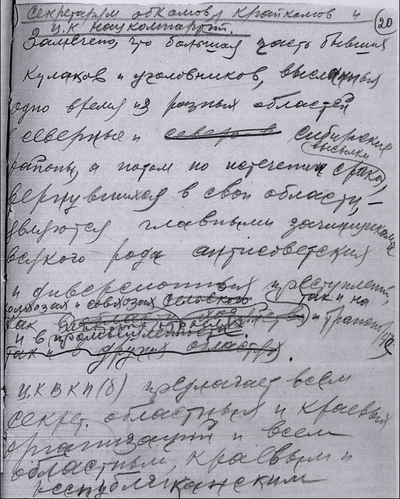 Секретарям обкомов, крайкомов и
ЦК нацкомпартий. 20
Замечено, что большая часть бывших
кулаков и уголовников, высланных
одно время из разных областей
в северные и сибирские
районы, а потом по истечении срока высылки
вернувшихся в свои области, –
являются главными зачинщиками
всякого рода антисоветских
и диверсионных преступлений,
как в колхозах и совхозах, так и на транспорте
и в
ЦК ВКП(б) предлагает всем
секрет. областных и краевых
организаций и всем
областным, краевым и
республиканским